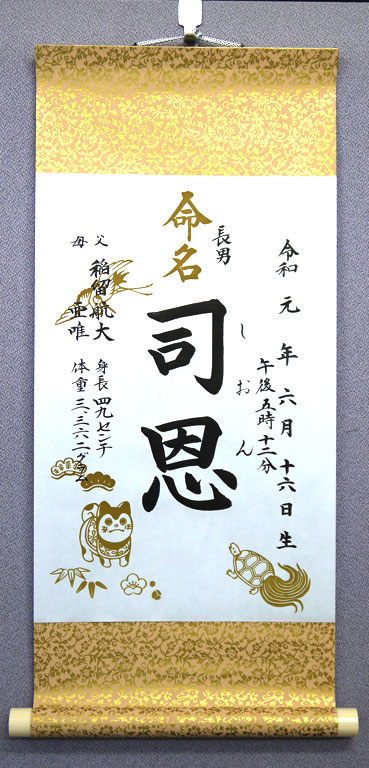 令和元年六月十六日生
午後五時十二分
命名
長男
司恩
しおん
父 稲留航大
母 亜唯
身長 四九センチ
体重 三、三六二グラム